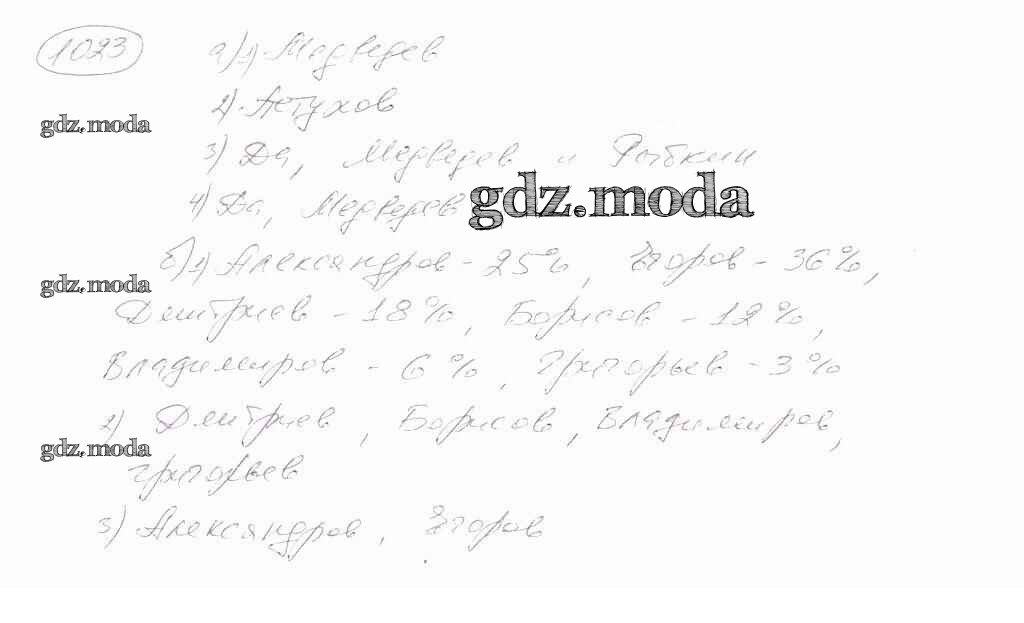 1023 а) 1) Медведев
2) Петухов
gdz.moda
3) Да, Медведев и Рыбкин
4) Да, Медведев gdz.moda
б) 1) Александров - 25%, Егоров - 36%,
gdz.moda
Дмитриев - 18%, Борисов - 12%,
Владимиров - 6%, Григорьев - 3%
2) Дмитриев, Борисов, Владимиров,
gdz.moda
Григорьев
3) Александров, Егоров